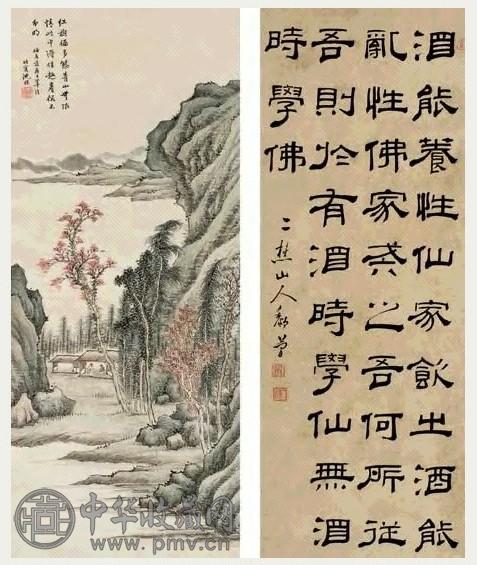 酒能養性仙家飲之酒能
亂性佛家戒之吾何所從
吾則於有酒時學仙無酒
時學佛
二樵山人黎簡
紅樹 多 青山
中华收藏网
www.pmv.cn